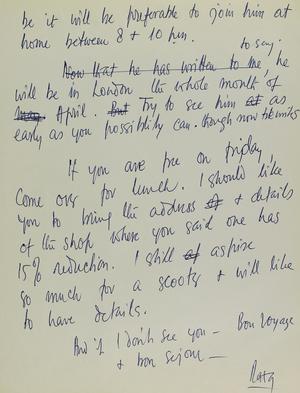 be it will be preferable to join him at
home between 8 & 10 hrs.
to say.
Now that he has written to me he
will be in London the whole month of
April. But Try to see him at as
early as you possiblity can. though now he writes
If you are free on friday,
come over for lunch. I should like
you to bring the address of & details
of the shop where you said one has
15% reduction. I still aspire
so much for a scooter & will like
to have details.
And if I don't see you — Bon Voyage
& bon sejour —